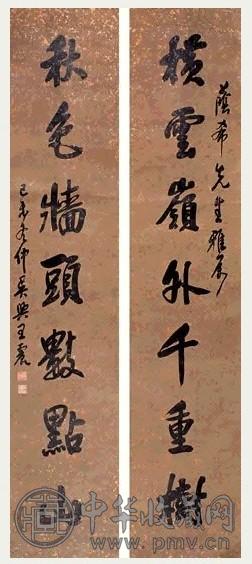 蔭希先生雅屬
橫雲嶺外千重樹
秋色牆頭數點山
己未冬仲吳興王震
中华收藏网
www.pmv.cn